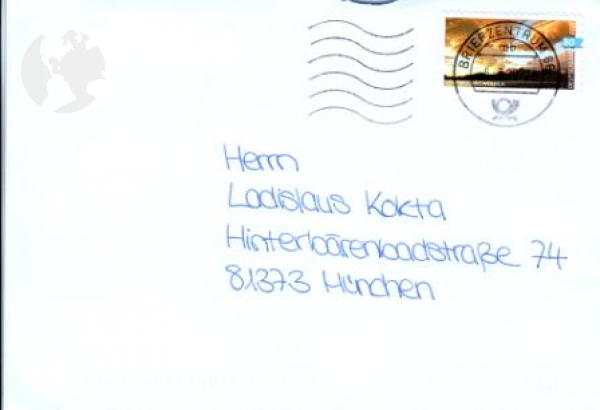 BRIEFZENTRUM 86
80
Herrn
Ladislaus Kokta
Hinterbärenbadstraße 74
81373 München